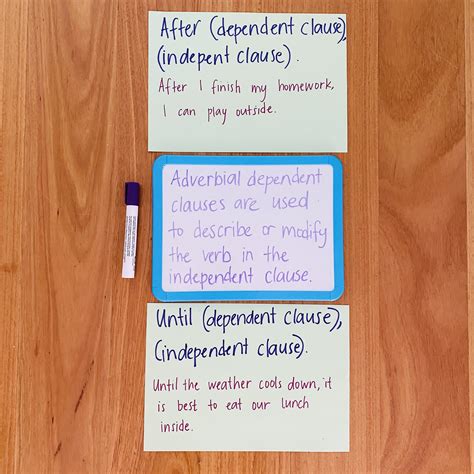 After (dependent clause),
(indepent clause).
After I finish my homework,
I can play outside.
Adverbial dependent
clauses are used
to describe or modify
the verb in the
independent clause.
Until (dependent clause),
(independent clause).
Until the weather cools down, it
is best to eat our lunch
inside.